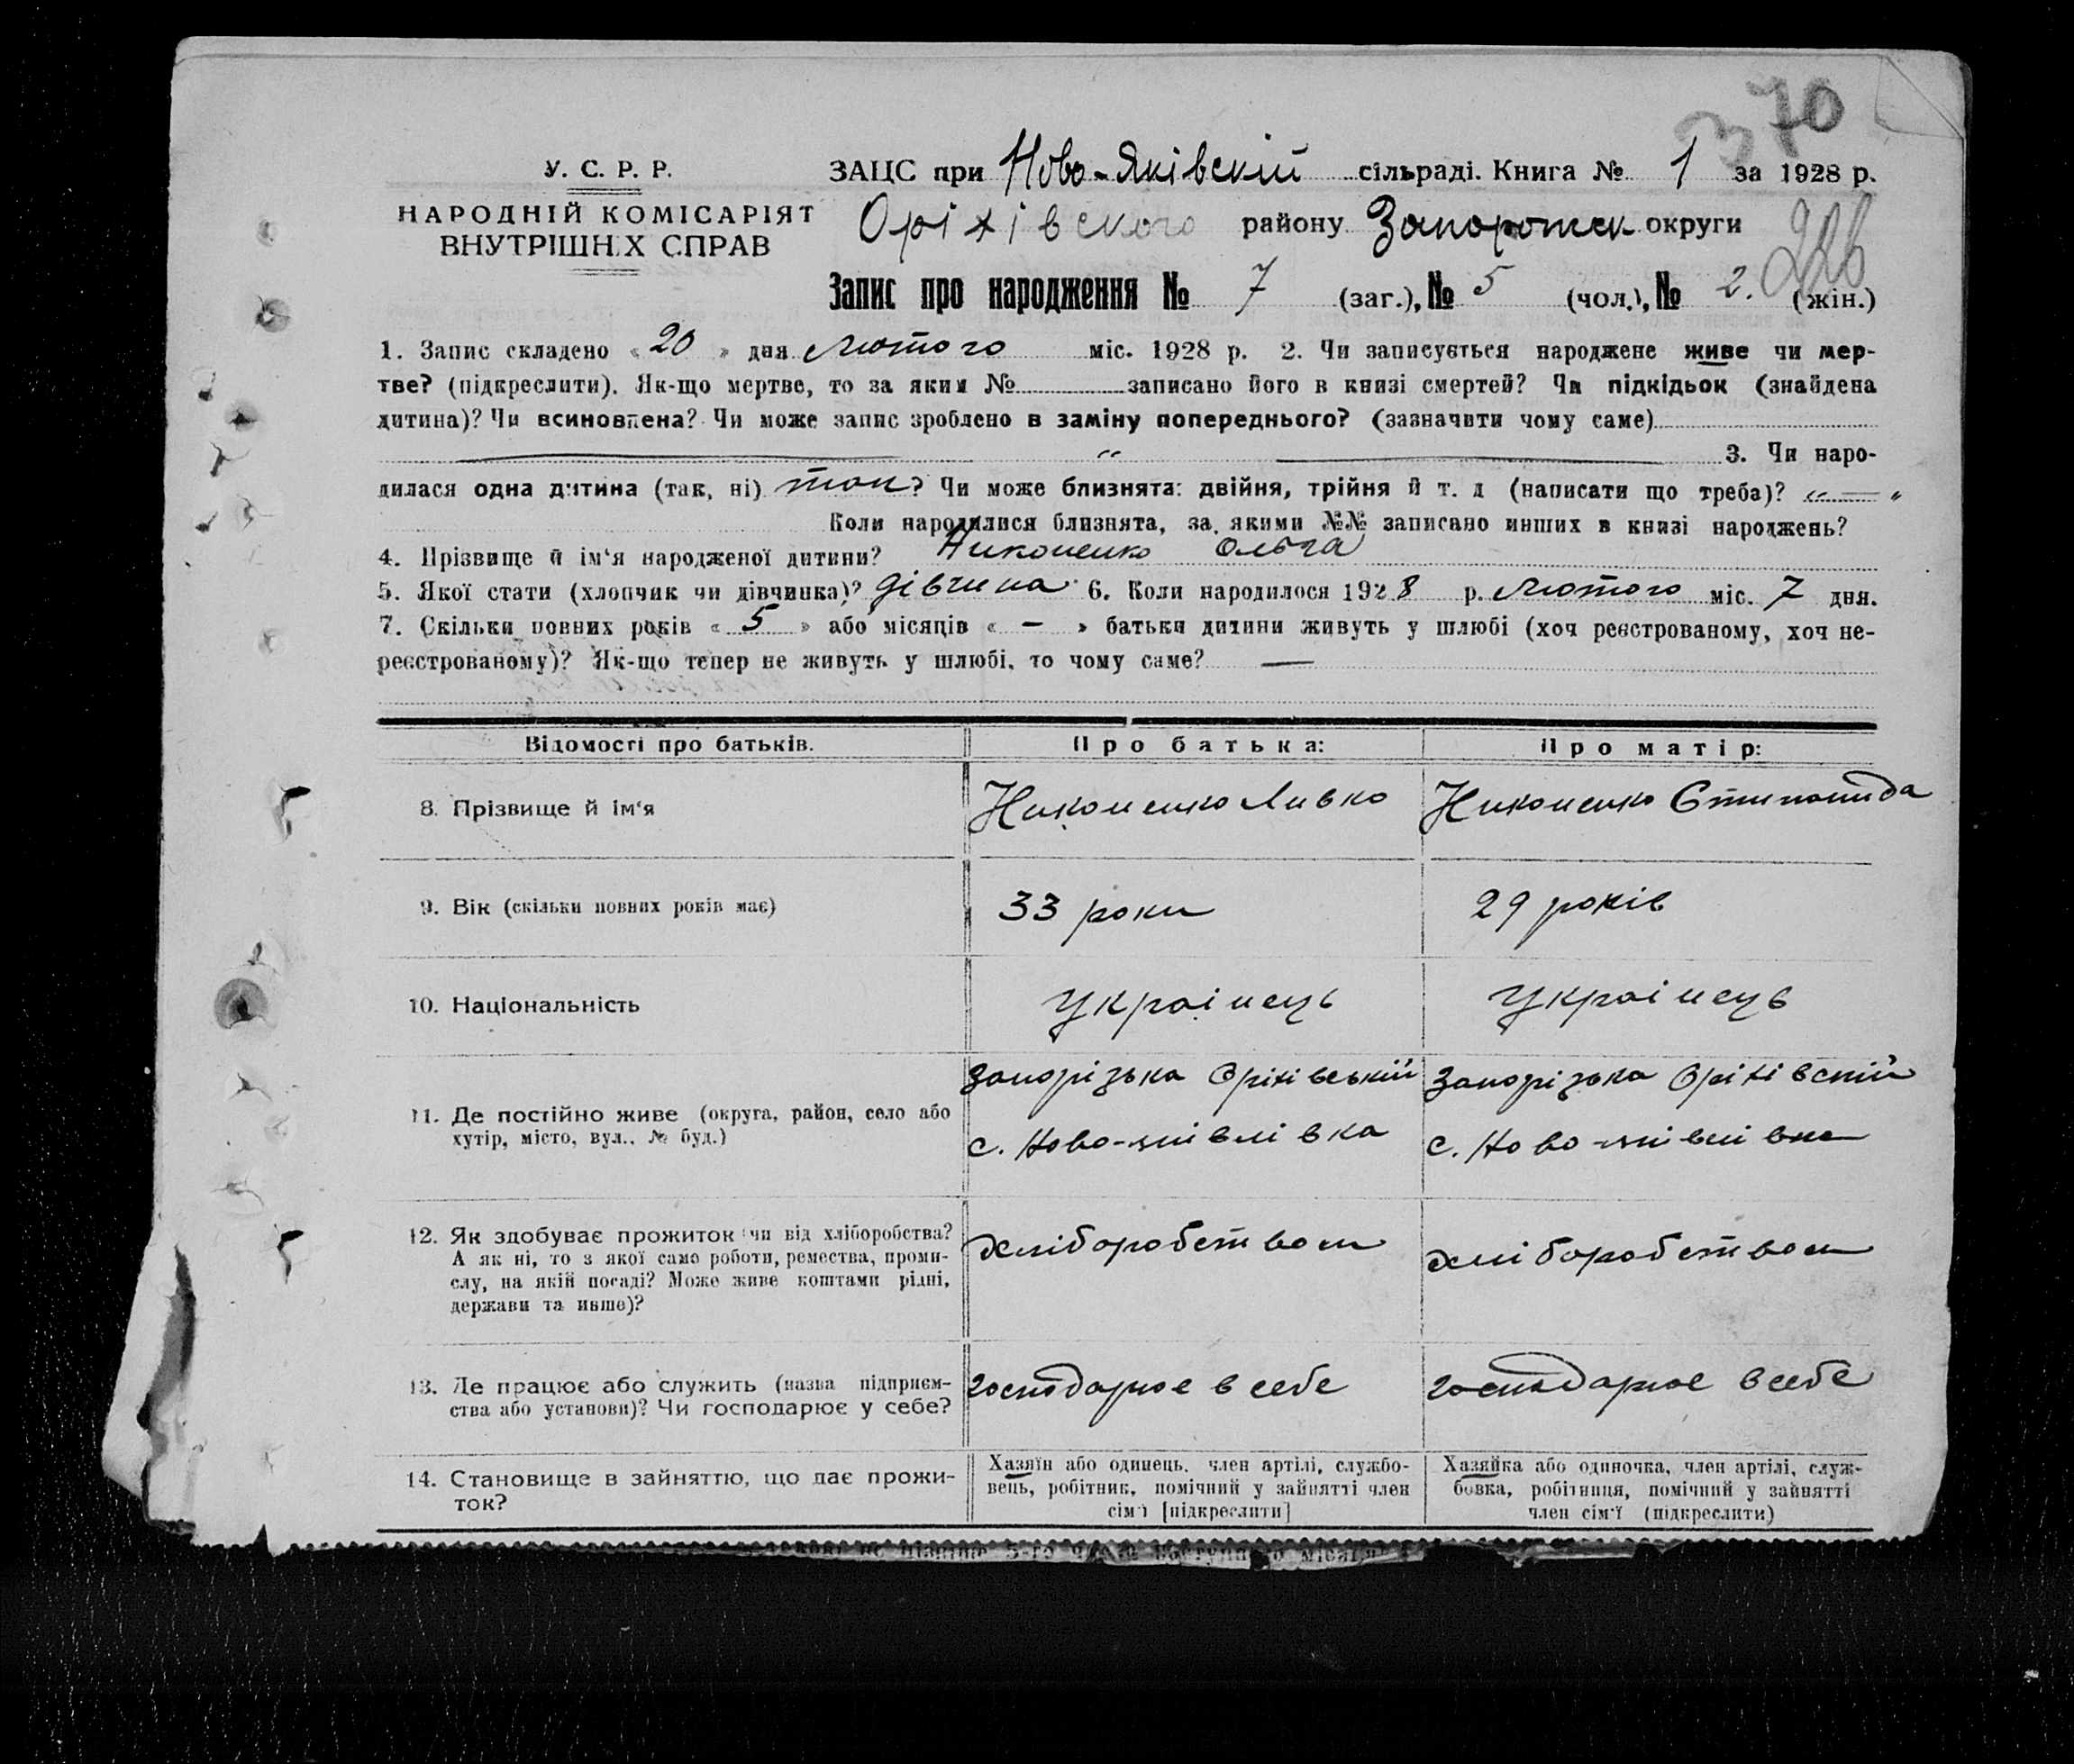 370
У. С. Р. Р.
НАРОДНІЙ КОМІСАРІЯТ
ВНУТРІШН.Х СПРАВ
ЗАЦС при Ново-Яківскій сільраді. Книга № 1 за 1928 р.
Оріхівского району Запорожск округи
226
Запис про народження № 7 (заг.), № 5 (чол.), № 2. (жін.)
1. Запис складено « 20 » дня Лютого міс. 1928 р. 2. Чи записується народжене живе чи мер-
тве? (підкреслити). Як-що мертве, то за яким № записано його в книзі смертей? Чи підкідьок (знайдена
дитина)? Чи всиновлена? Чи може запис зроблено в заміну попереднього? (зазначити чому саме)
— „ — 3. Чи наро-
дилася одна дитина (так, ні) так? Чи може близнята: двійня, трійня й т. д (написати що треба)? „ — „
Коли народилися близнята, за якими №№ записано инших в книзі народжень?
4. Прізвище й ім‘я народженої дитини? Никоненко Ольга
5. Якої стати (хлопчик чи дівчинка)? дівчина 6. Коли народилося 1928 р. Лютого міс. 7 дня.
7. Скільки повних років « 5 » або місяців « — » батьки дитини живуть у шлюбі (хоч реєстрованому, хоч не-
реєстрованому)? Як-що тепер не живуть у шлюбі, то чому саме? —
Відомості про батьків. Про батька: Про матір:
8. Прізвище й ім‘я НиконенкоЛивко Никоненко
9. Вік (скільки повних років має) 33 роки 29 років
10. Національність Украінець Украінець
11. Де постійно живе (округа, район, село або
хутір, місто, вул.. № буд.)
Запорізька Оріхівський
с. Ново-янівлівка
Запорізька Оріхівский
с. Ново-янівлівка
12. Як здобуває прожиток (чи від хліборобства?
А як ні, то з якої само роботи, ремества, проми-
слу, на якій посаді? Може живе коштами рідні,
держави та инше)?
хліборобством
хліборобством
13. Де працює або служить (назва підприєм-
ства або установи)? Чи господарює у себе?
господарює в себе
господарює в себе
14. Становище в зайняттю, що дає прожи-
ток?
Хазяїн або одинець. член артілі, службо-
вець, робітник, помічний у зайнятті член
сім‘ї [підкреслити]
Хазяйка або одиночка, член артілі, служ-
бовка, робітниця, помічний у зайнятті
член сім‘ї (підкреслити)